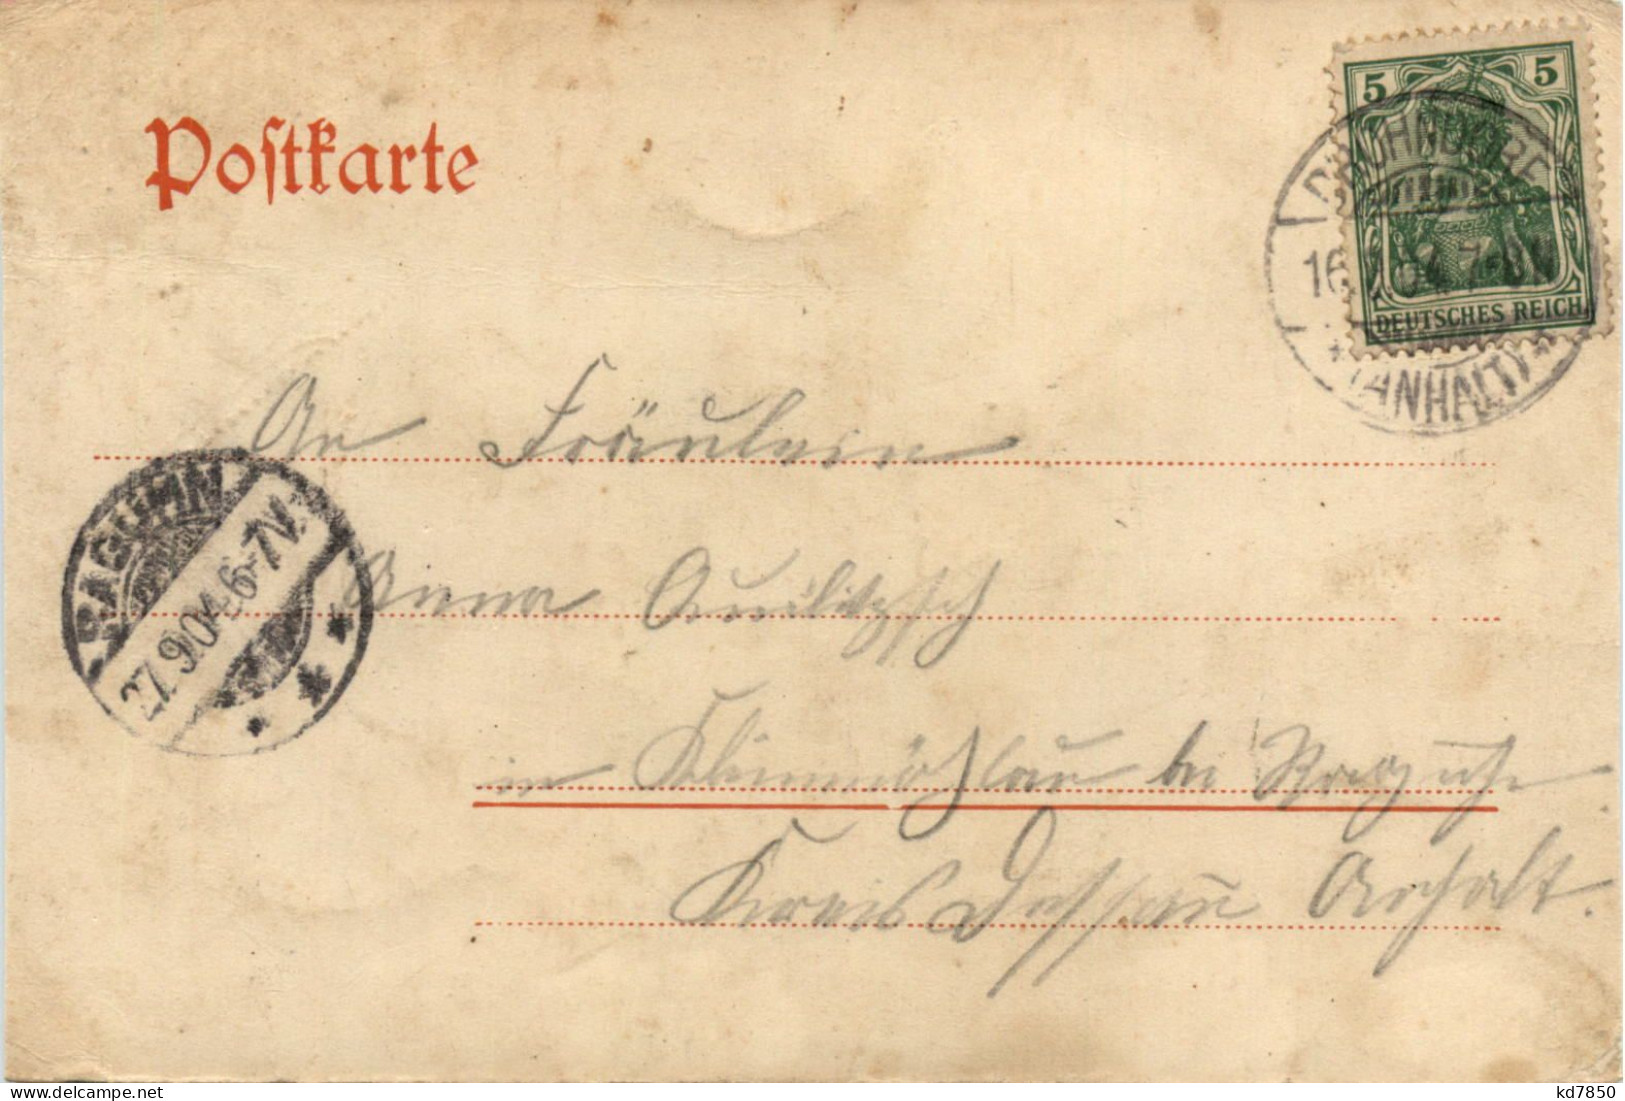 Postkarte
5 5
DEUTSCHES REICH
16. 04 7-8N
(ANHALT)
An Fräulein
RAGUHN
27.9.04.6-7V.
Anna
in Kleinmöhlau bei Raguhn.
Kreis Dessau Anhalt.
kd7850